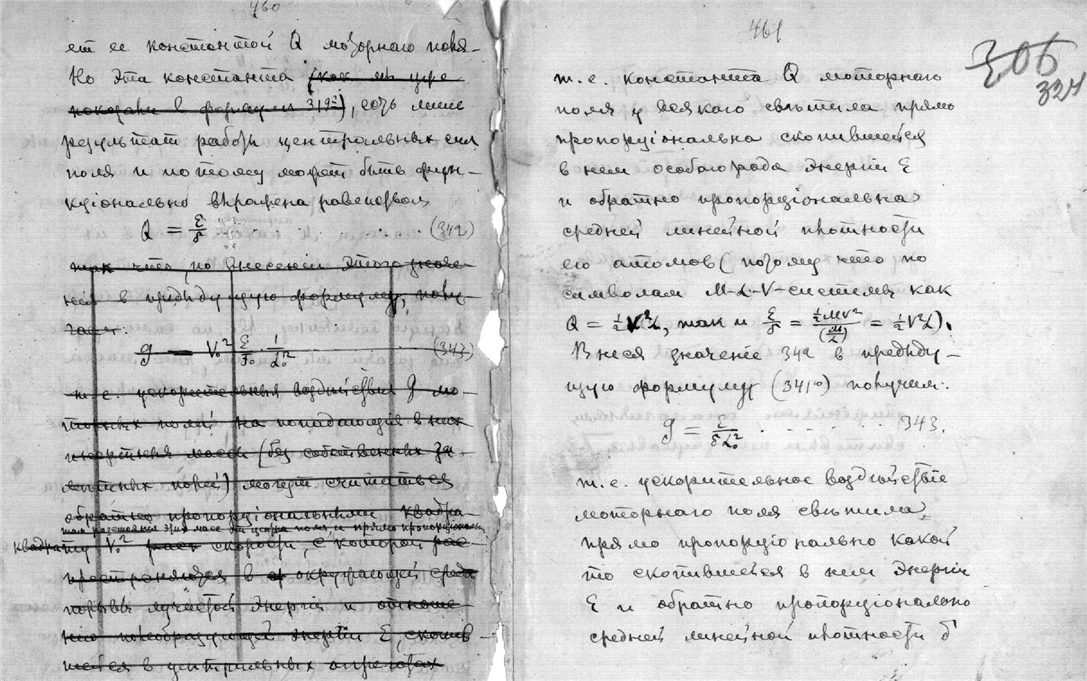 460
ет ее константой Q моторнаго поля.
Но эта константа (как мы уже
показали в формуле 319), есть лишь
результат работы центральных сил
поля и потому может быть функ-
ціонально выражена равенством
Q = ε/δ . . . . . . (342)
так что по внесеніи этого значе-
нія в предыдущую формулу, полу-
чаем:
g = V₀² 1/L₀² (343)
т. е. ускорительныя воздействія g мо-
торных полей на попадающія в них
инертныя массы (без собственных
полей) могут считаться
обратно пропорціональными квадра-
там разстояній этих масс от центра поля и прямо пропорціональны
квадрату V₀² скорости, с которой рас-
пространяются в окружающей среде
лучистой энергіи и отноше-
нію энергіи ε, скопив-
шейся в центральных
461
306
324
т. е. константа Q моторнаго
поля у всякаго светила прямо
пропорціональна скопившейся
в нем особого рода энергіи ε
и обратно пропорціональна
средней линейной плотности
его атомов (потому что по
символам M-L-V-системы как
Q = ½V²L, так и ε/δ = ½MV²/(M/L) = ½V²L).
Внеся значеніе 342 в предыду-
щую формулу (341) получим:
g = ε/δL₀² . . . . . . 343.
т. е. ускорительное воздействіе
моторнаго поля светила,
прямо пропорціонально какой
то скопившейся в нем энергіи
ε и обратно пропорціонально
средней линейной плотности δ